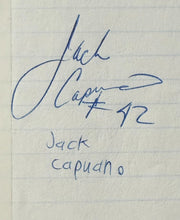 Jack
Capuano
#42
Jack
Capuano